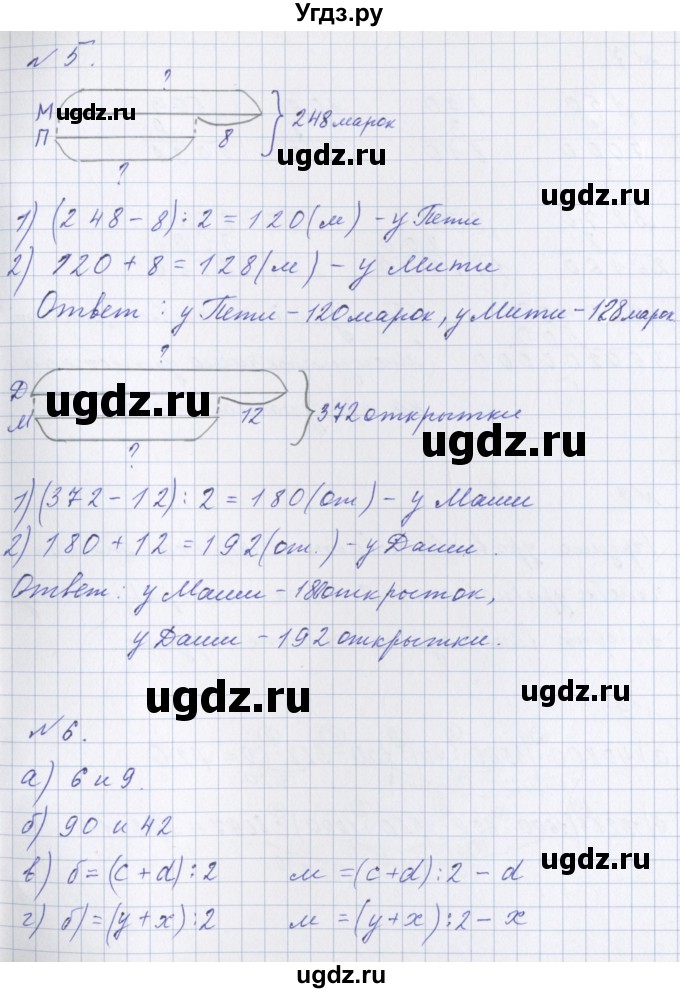 Угдз.ру
№ 5.
?
М ugdz.ru
П 8 } 248 марок
ugdz.ru
?
ugdz.ru
1) (248 - 8) : 2 = 120 (м) - у Пети
2) 120 + 8 = 128 (м) - у Мити
Ответ : у Пети - 120 марок, у Мити - 128 марок
?
Д
ugdz.ru 12 } 372 открытки
М
ugdz.ru
?
1) (372 - 12) : 2 = 180 (от) - у Маши
2) 180 + 12 = 192 (от.) - у Даши.
Ответ : у Маши - 180 открыток,
у Даши - 192 открытки.
ugdz.ru ugdz.ru
№ 6.
а) 6 и 9.
б) 90 и 42
ugdz.ru
в) б = (c + d) : 2 м = (c + d) : 2 - d
г) б) = (y + x) : 2 м = (y + x) : 2 - x
ugdz.ru